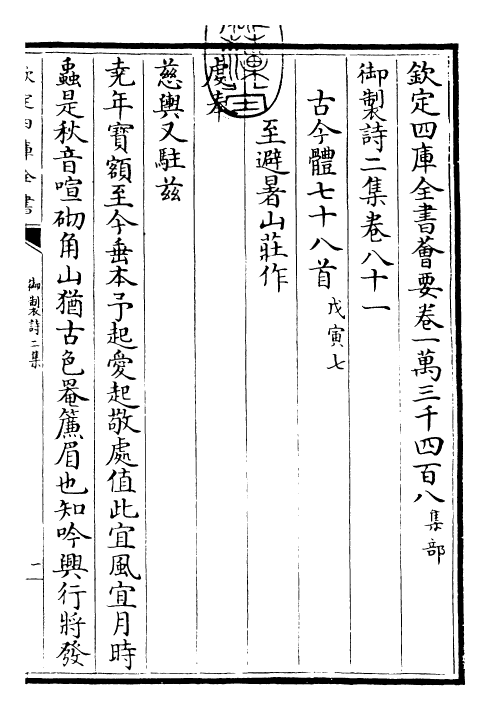 欽定四庫全書薈要卷一萬三千四百八集部
御製詩二集卷八十一
古今體七十八首戊寅七
至避暑山莊作
處奉
慈輿又駐兹
堯年寳額至今垂本予起愛起敬處值此宜風宜月時
蟲是秋音喧砌角山猶古色罨簷眉也知吟興行將發
欽定四庫全書
御製詩二集
一